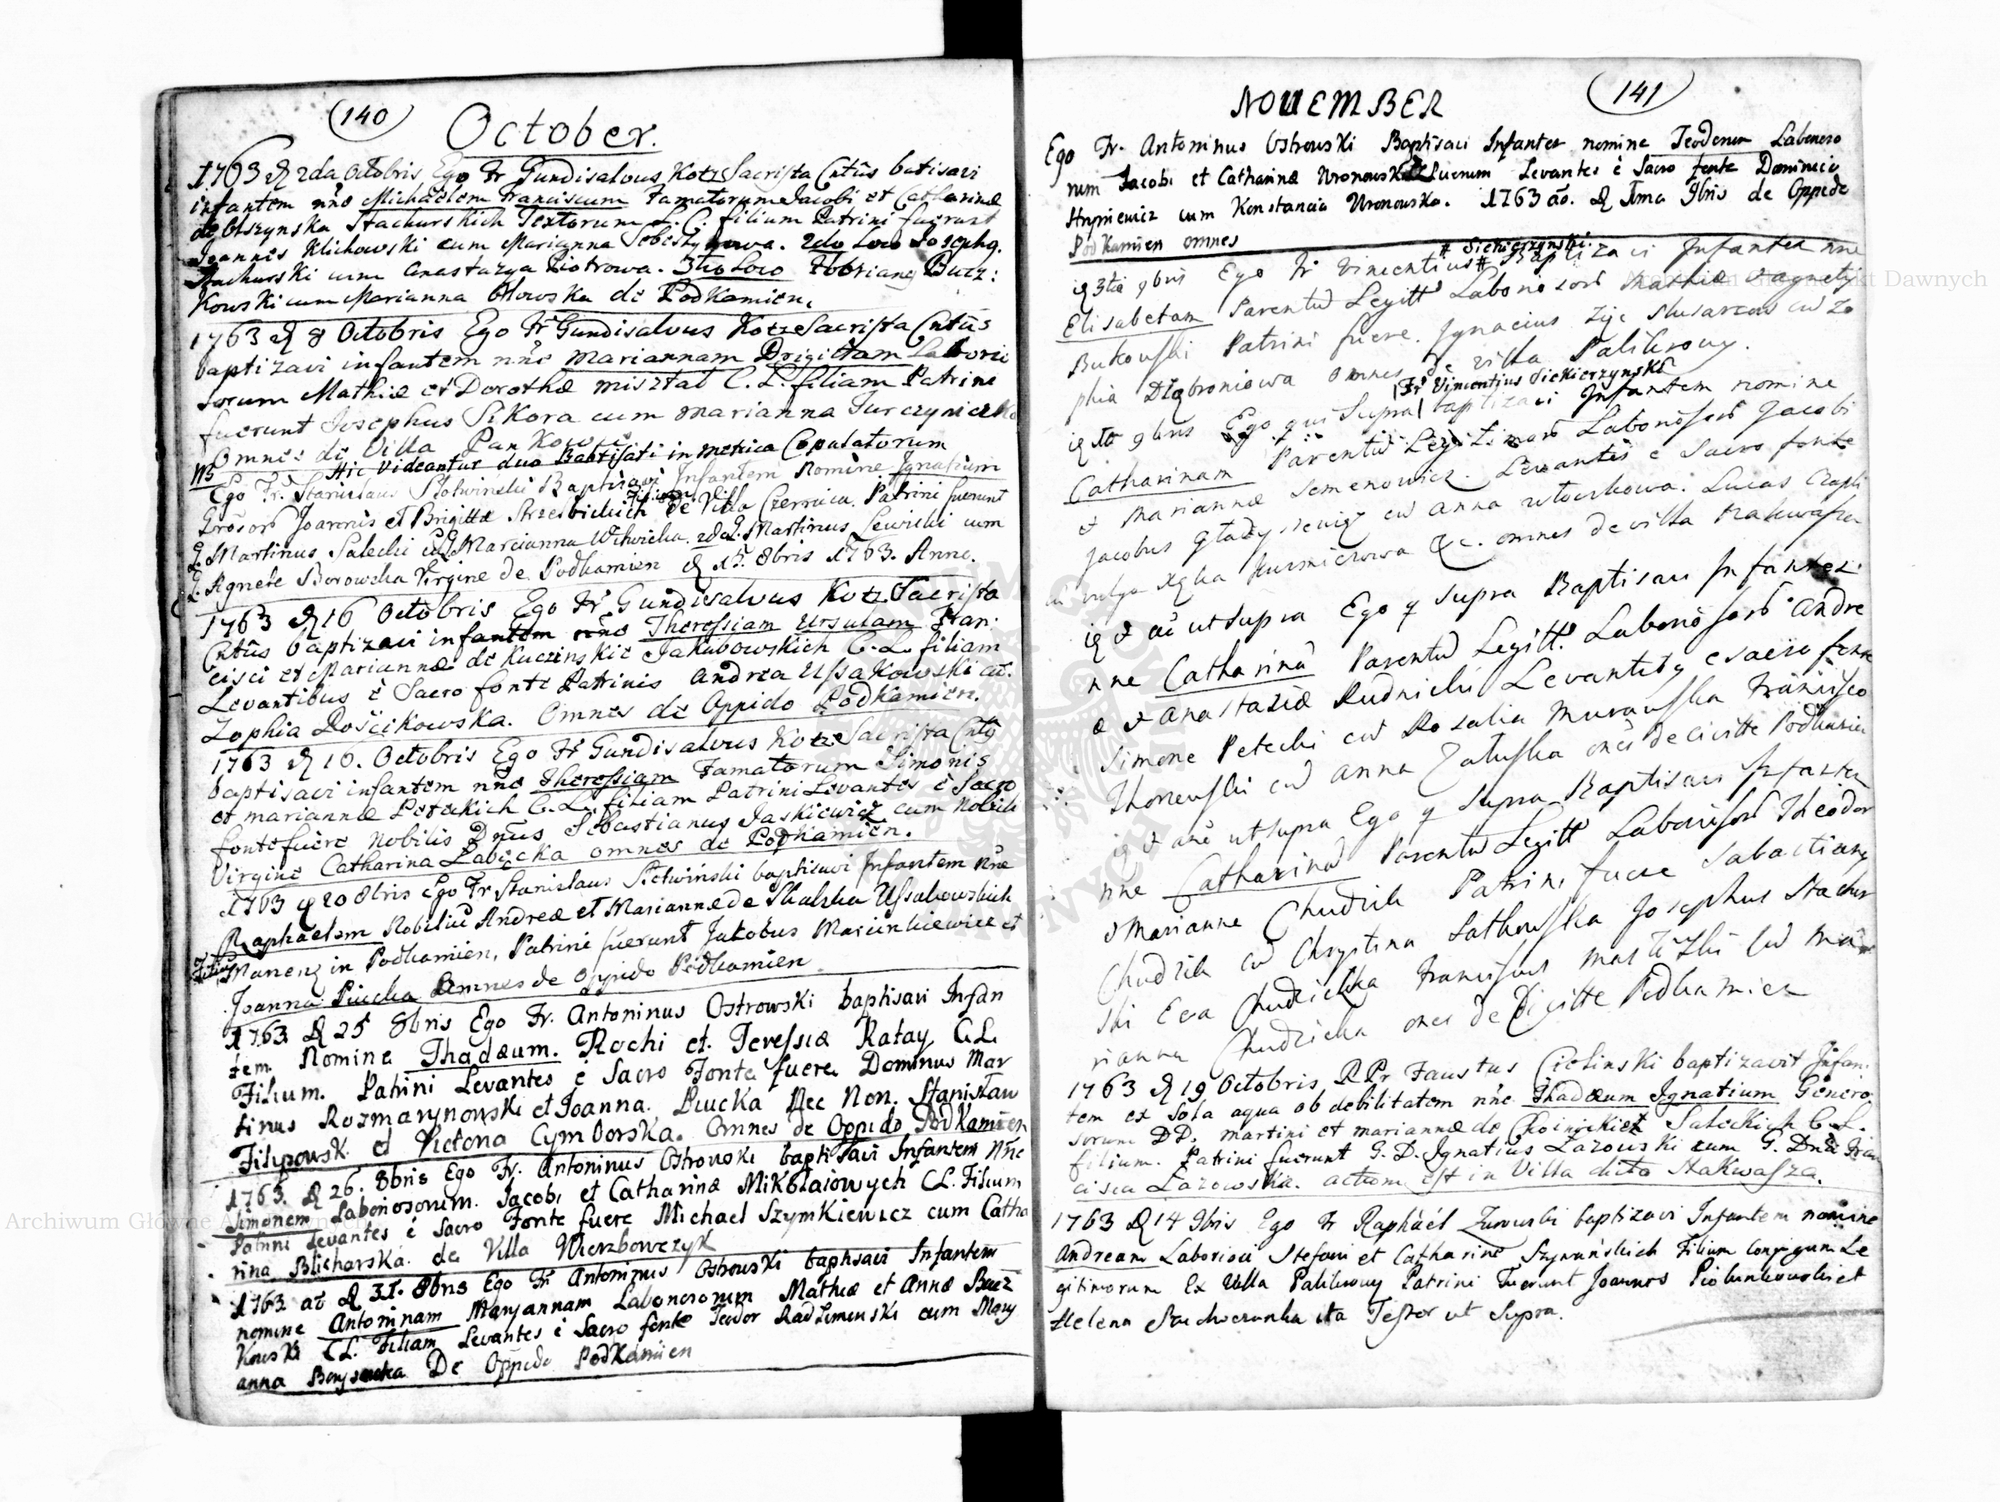 140
October.
1763 d 2da Octobris Ego Fr Gundisalvus Kotz Sacrista Cntûs batisavi
infantem nñe Michaëlem Franciscum Famatorum Jacobi et Catharinæ
de Olszynska Stachurskich Textorum L. C. filium Patrini fuerunt
Joannes Klichowski cum Marianna 2do Loco Josephq
Stachurski cum Anastazya Piotrowa. 3tio Loco
Kowski cum Marianna Olowska de Podkamien.
1763 d 8 Octobris Ego Fr Gundisalvus Kotz Sacrista Cntûs
baptizavi infantem nñe Mariannam Brigittam Laborio
sorum Mathiæ et Dorothæ Misztal C. L. filiam Patrini
fuerunt Josephus Sikora cum Marianna
Omnes de Villa Pankowce
NB Hic Videantur duo Babtisati in metrica Copulatorum
Ego Fr. Stanislaus Slotwinski Baptisavi Infantem Nomine Ignatium
Joannis et Brigittæ Filium de Villa Czernica. Patrini fuerunt
G. Martinus Salecki cum Marcianna Witwicka. 2do G. Martinus Lewicki cum
G. Agnete Borowska Virgine de Podkamien d 15. 8bris 1763. Anno.
1763 d 16 Octobris Ego Fr Gundisalvus Kotz Sacrista
Cntûs baptizavi infantem nñe Theressiam Ursulam Fran:
cisci et Mariannæ de Kuczinskie Jakubowskich C. L. filiam
Levantibus è Sacro fonte Patrinis Andrea Ussakowski ac
Zophia Roscikowska. Omnes de Oppido Podkamien.
1763 d 10. Octobris Ego Fr Gundisalvus Kotz Sacrista Cntq
baptisavi infantem nñe Theressiam Famatorum Simonis
et mariannæ Peteckich C. L. filiam Patrini Levantes è Sacro
fonte fuere Nobilis Dnûs Sebastianus Jaskiewicz cum Nobili
Virgine Catharina omnes de Podkamien.
1763 d 20 8bris Ego Fr Stanislaus Slotwinski baptisavi Infantem Nñe
Raphaëlem Nobiliũ Andreæ et Mariannæ de Skalska Ussakowskich
Filiũ Manenq in Podkamien, Patrini fuerunt Jakobus Marcinkiewicz et
Joanna Piucka Omnes de Oppido Podkamien
1763 d 25 8bris Ego Fr. Antoninus Ostrowski baptisavi Infan
tem Nomine Thadæum. Rochi et Teressiæ Ratay C. L.
Filium. Patrini Levantes è Sacro Fonte fuere Dominus Mar
tinus Rozmarynowski et Joanna. Piucka Nec Non. Stanislaw
Filipowski et Victoria Cymborska. Omnes de Oppido Podkamien
1763. d 26. 8bris Ego Fr. Antoninus Ostrowski baptisavi Infantem Nñe
Simonem Laboriosorum. Jacobi et Catharinæ Mikolaiowych C L. Filium
Patrini Levantes è Sacro Fonte fuere Michael Szymkiewicz cum Catha
rina Blicharska. de Villa Wierzbowczyk
1763 ao d 31. 8bris Ego Fr Antoninus Ostrowski baptisavi Infantem
nomine Antoninam Maryannam Laboriosorum Mathiæ et Annæ Bucz
Kowski C L. Filiam Levantes è Sacro fonte Teodor Radzimenski cum Mary
anna De Oppido Podkamien
NOVEMBER
141
Ego Fr. Antoninus Ostrowski Baptisavi Infantem nomine Teodorum Laborioso
rum Jacobi et Catharinæ Wronowski Fuerunt Levantes è Sacro fonte Dominicus
Hrynиewicz cum Konstancia Wronowska. 1763 ao. d Ima 9bris de Oppido
Podkamien omnes
# Siekierzynski.
d 3tia 9bris Ego Fr Vincentius # Baptizavi Infantem nñe
Elisabetam Parentũ Legitt Laborioso Mathiæ Magnety
Bukowski Patrini fuere Ignacius Zyc slusarcow cũ Zo
phia Dląbroniowa omnes de villa Palikrowy.
Fr Vincentius Siekierzynski
Ego qui Supra baptizavi Infantem nomine
Catharinam Parentũ Legitimor Laborioso Jacobi
et Mariannæ Semenowicz. Levantes è Sacro fonte
Jacobus cũ Anna Lucas
omnes de villa Nakwasza
d et añ ut supra Ego q supra Baptisavi Infantem
nñe Catharinã Parentũ Legitt. Laborio Andre
æ et Anastasiæ Rudnicki Levantibq e sacro fonte
Simone Petecki cũ Rosalia Murawska Francisco
cũ Anna Zaluska omes de Civitte Podkamien
d et añe ut supra Ego q supra Baptisavi Infantem
nñe Catharinã Parentũ Legitt Laborioso Theodor
et Marianne Chudzik Patrini fuere Sabastianq
Chudzik cũ Chrystina Sathowska Josephus Stachur
ski Eva Chudzicka Franciscus cũ Ma
rianna Chudzicka omes de Civitte Podkamien
1763 d 19 Octobris R. Pr Faustus Cieclinski baptizavit Infan:
tem ex Sola aqua ob debilitatem nñe Thadæum Ignatium Genero
sorum DD. Martini et mariannæ de Choinickiet Saleckich C. L.
filium. Patrini fuerunt G. D. Ignatius Lazowski cum G. Dnã Fran
cisca Lazowska. actum est in Villa dicta Nakwasza.
1763 d 14 9bris Ego Fr Raphaël Zurowski baptizavi Infantem nomine
Andream Laboriosi Stefani et Catharinæ Szymańskich Filium Conjugum Le
gitimorum Ex Villa Palikrowy Patrini Fuerunt Joannes Piolunkowski et
Helena ita Testor ut Supra.
Archiwum Główne Akt Dawnych
Archiwum Główne Akt Dawnych